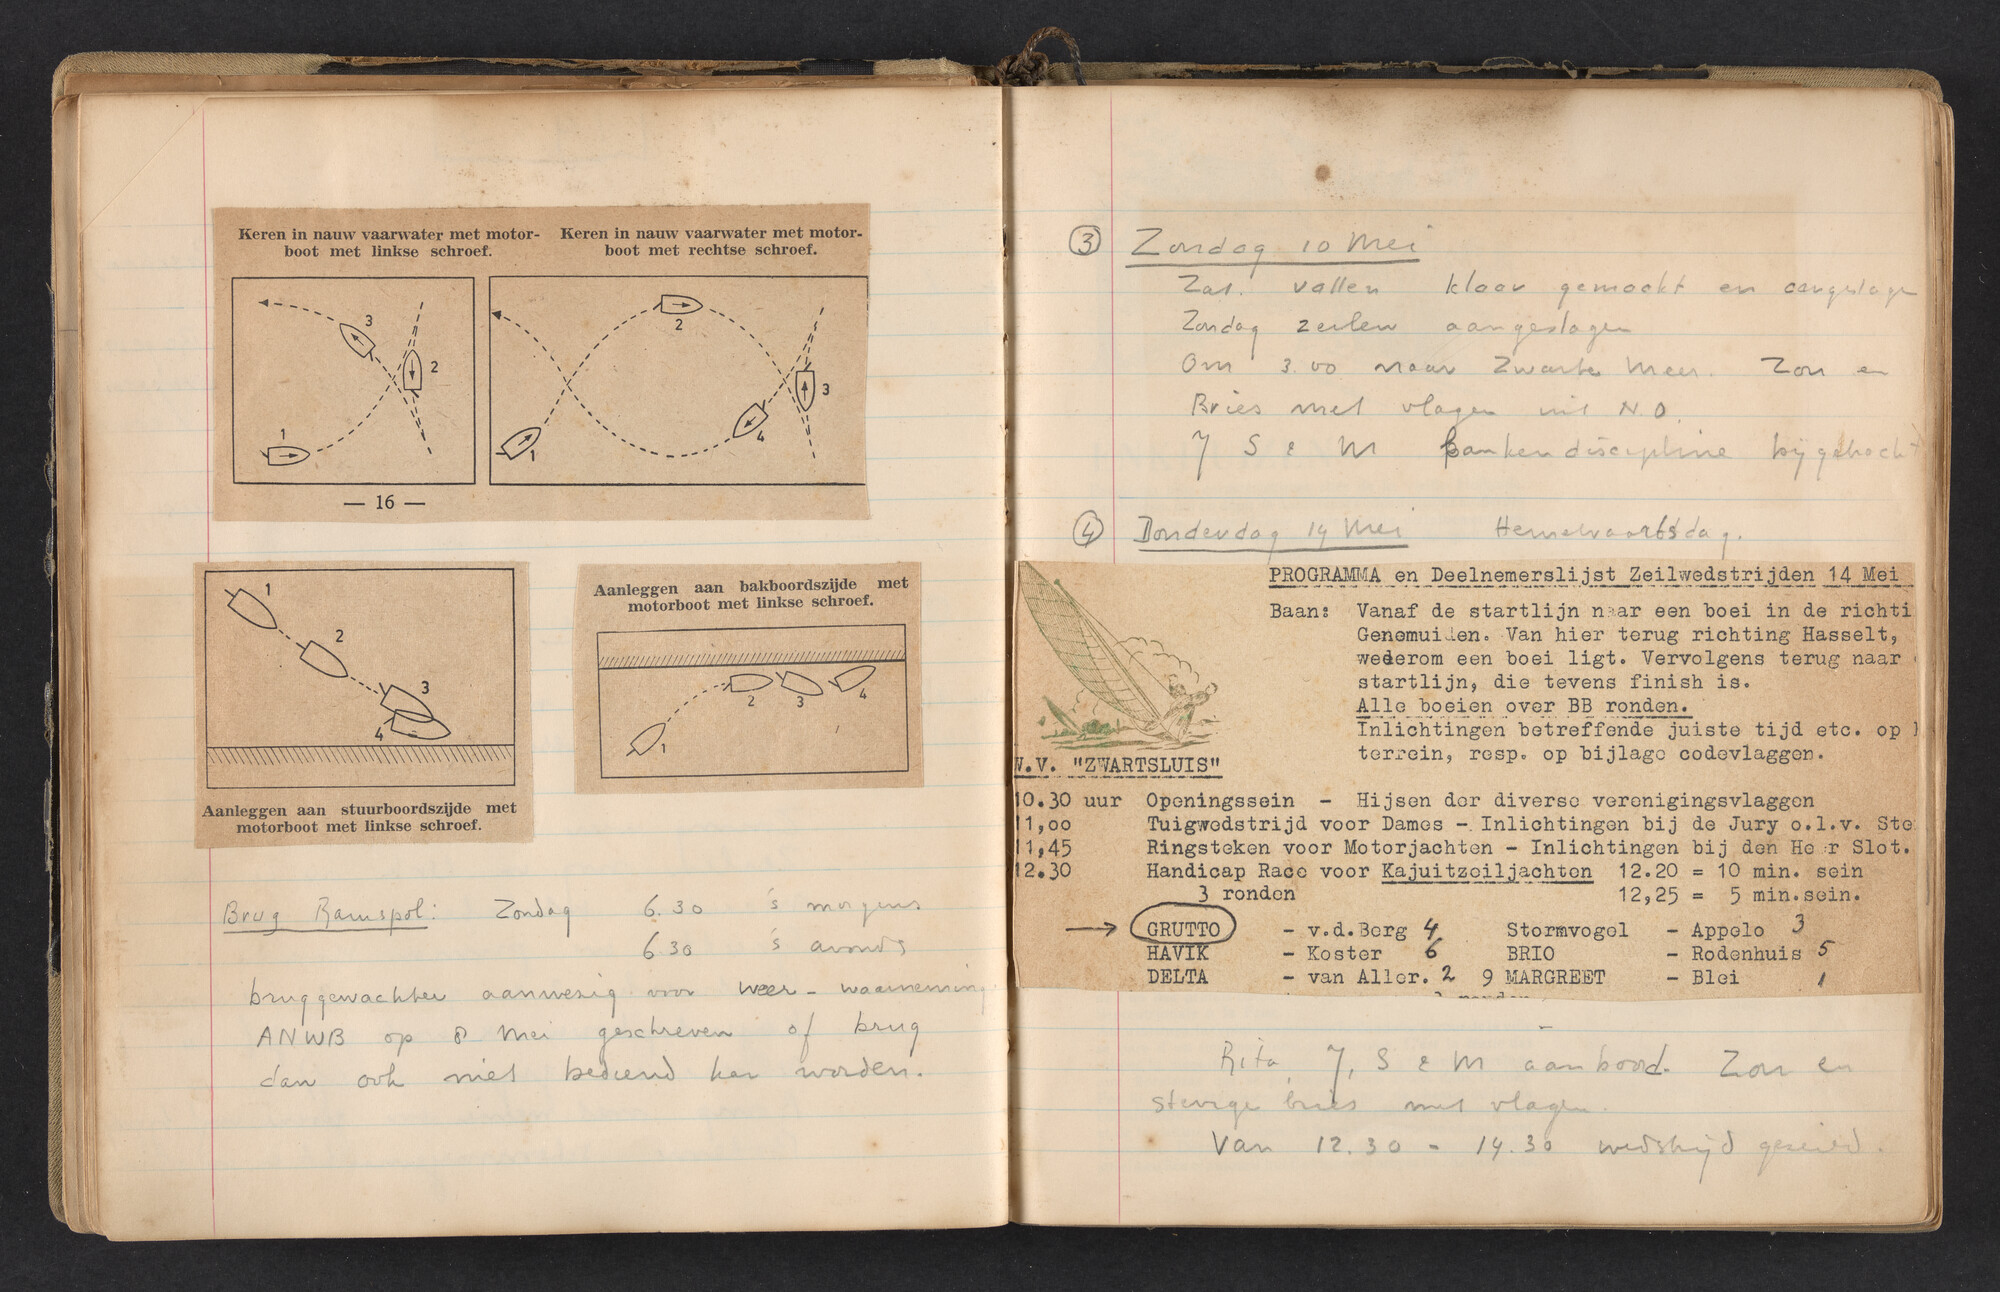 Keren in nauw vaarwater met motor-
boot met linkse schroef.
Keren in nauw vaarwater met motor-
boot met rechtse schroef.
1
2
3
1
2
3
4
— 16 —
1
2
3
4
Aanleggen aan stuurboordszijde met
motorboot met linkse schroef.
Aanleggen aan bakboordszijde met
motorboot met linkse schroef.
1
2
3
4
Brug Ramspol: Zondag 6.30 's morgens
6.30 's avonds
bruggewachter aanwezig voor weer-waarneming.
ANWB op 8 Mei geschreven of brug
dan ook niet bediend kan worden.
3 Zondag 10 Mei
Zat. vallen klaar gemaakt en
Zondag zeilen aangeslagen
Om 3.00 naar Zwarte Meer. Zon en
Bries met vlagen uit N.O.
J S & M bankendiscipline
4 Donderdag 14 Mei Hemelvaartsdag.
PROGRAMMA en Deelnemerslijst Zeilwedstrijden 14 Mei
Baan: Vanaf de startlijn naar een boei in de richti
Genemuiden. Van hier terug richting Hasselt,
wederom een boei ligt. Vervolgens terug naar
startlijn, die tevens finish is.
Alle boeien over BB ronden.
Inlichtingen betreffende juiste tijd etc. op
terrein, resp. op bijlage codevlaggen.
W.V. "ZWARTSLUIS"
10.30 uur Openingssein - Hijsen der diverse verenigingsvlaggen
11,00 Tuigwedstrijd voor Dames - Inlichtingen bij de Jury o.l.v. Ste
11,45 Ringsteken voor Motorjachten - Inlichtingen bij den Heer Slot.
12.30 Handicap Race voor Kajuitzeiljachten 12.20 = 10 min. sein
3 ronden 12,25 = 5 min.sein.
→ GRUTTO - v.d.Berg 4 Stormvogel - Appelo 3
HAVIK - Koster 6 BRIO - Rodenhuis 5
DELTA - van Aller. 2 9 MARGREET - Blei 1
Rita, J, S & M aan boord. Zon en
stevige bries met vlagen.
Van 12.30 - 14.30 wedstrijd gezeild.